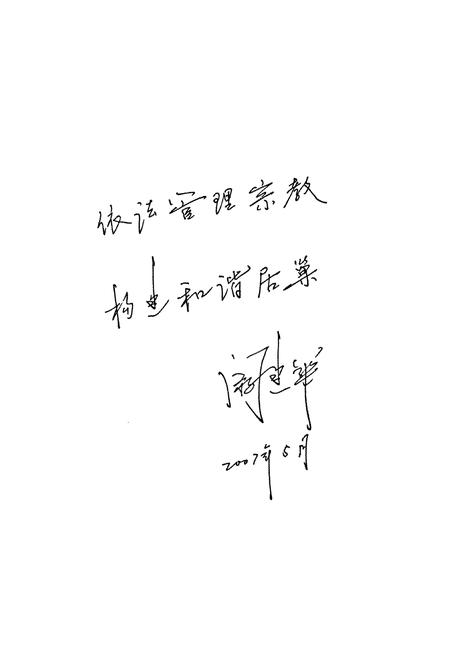 依法管理宗教
构建和谐居巢
2007年5月